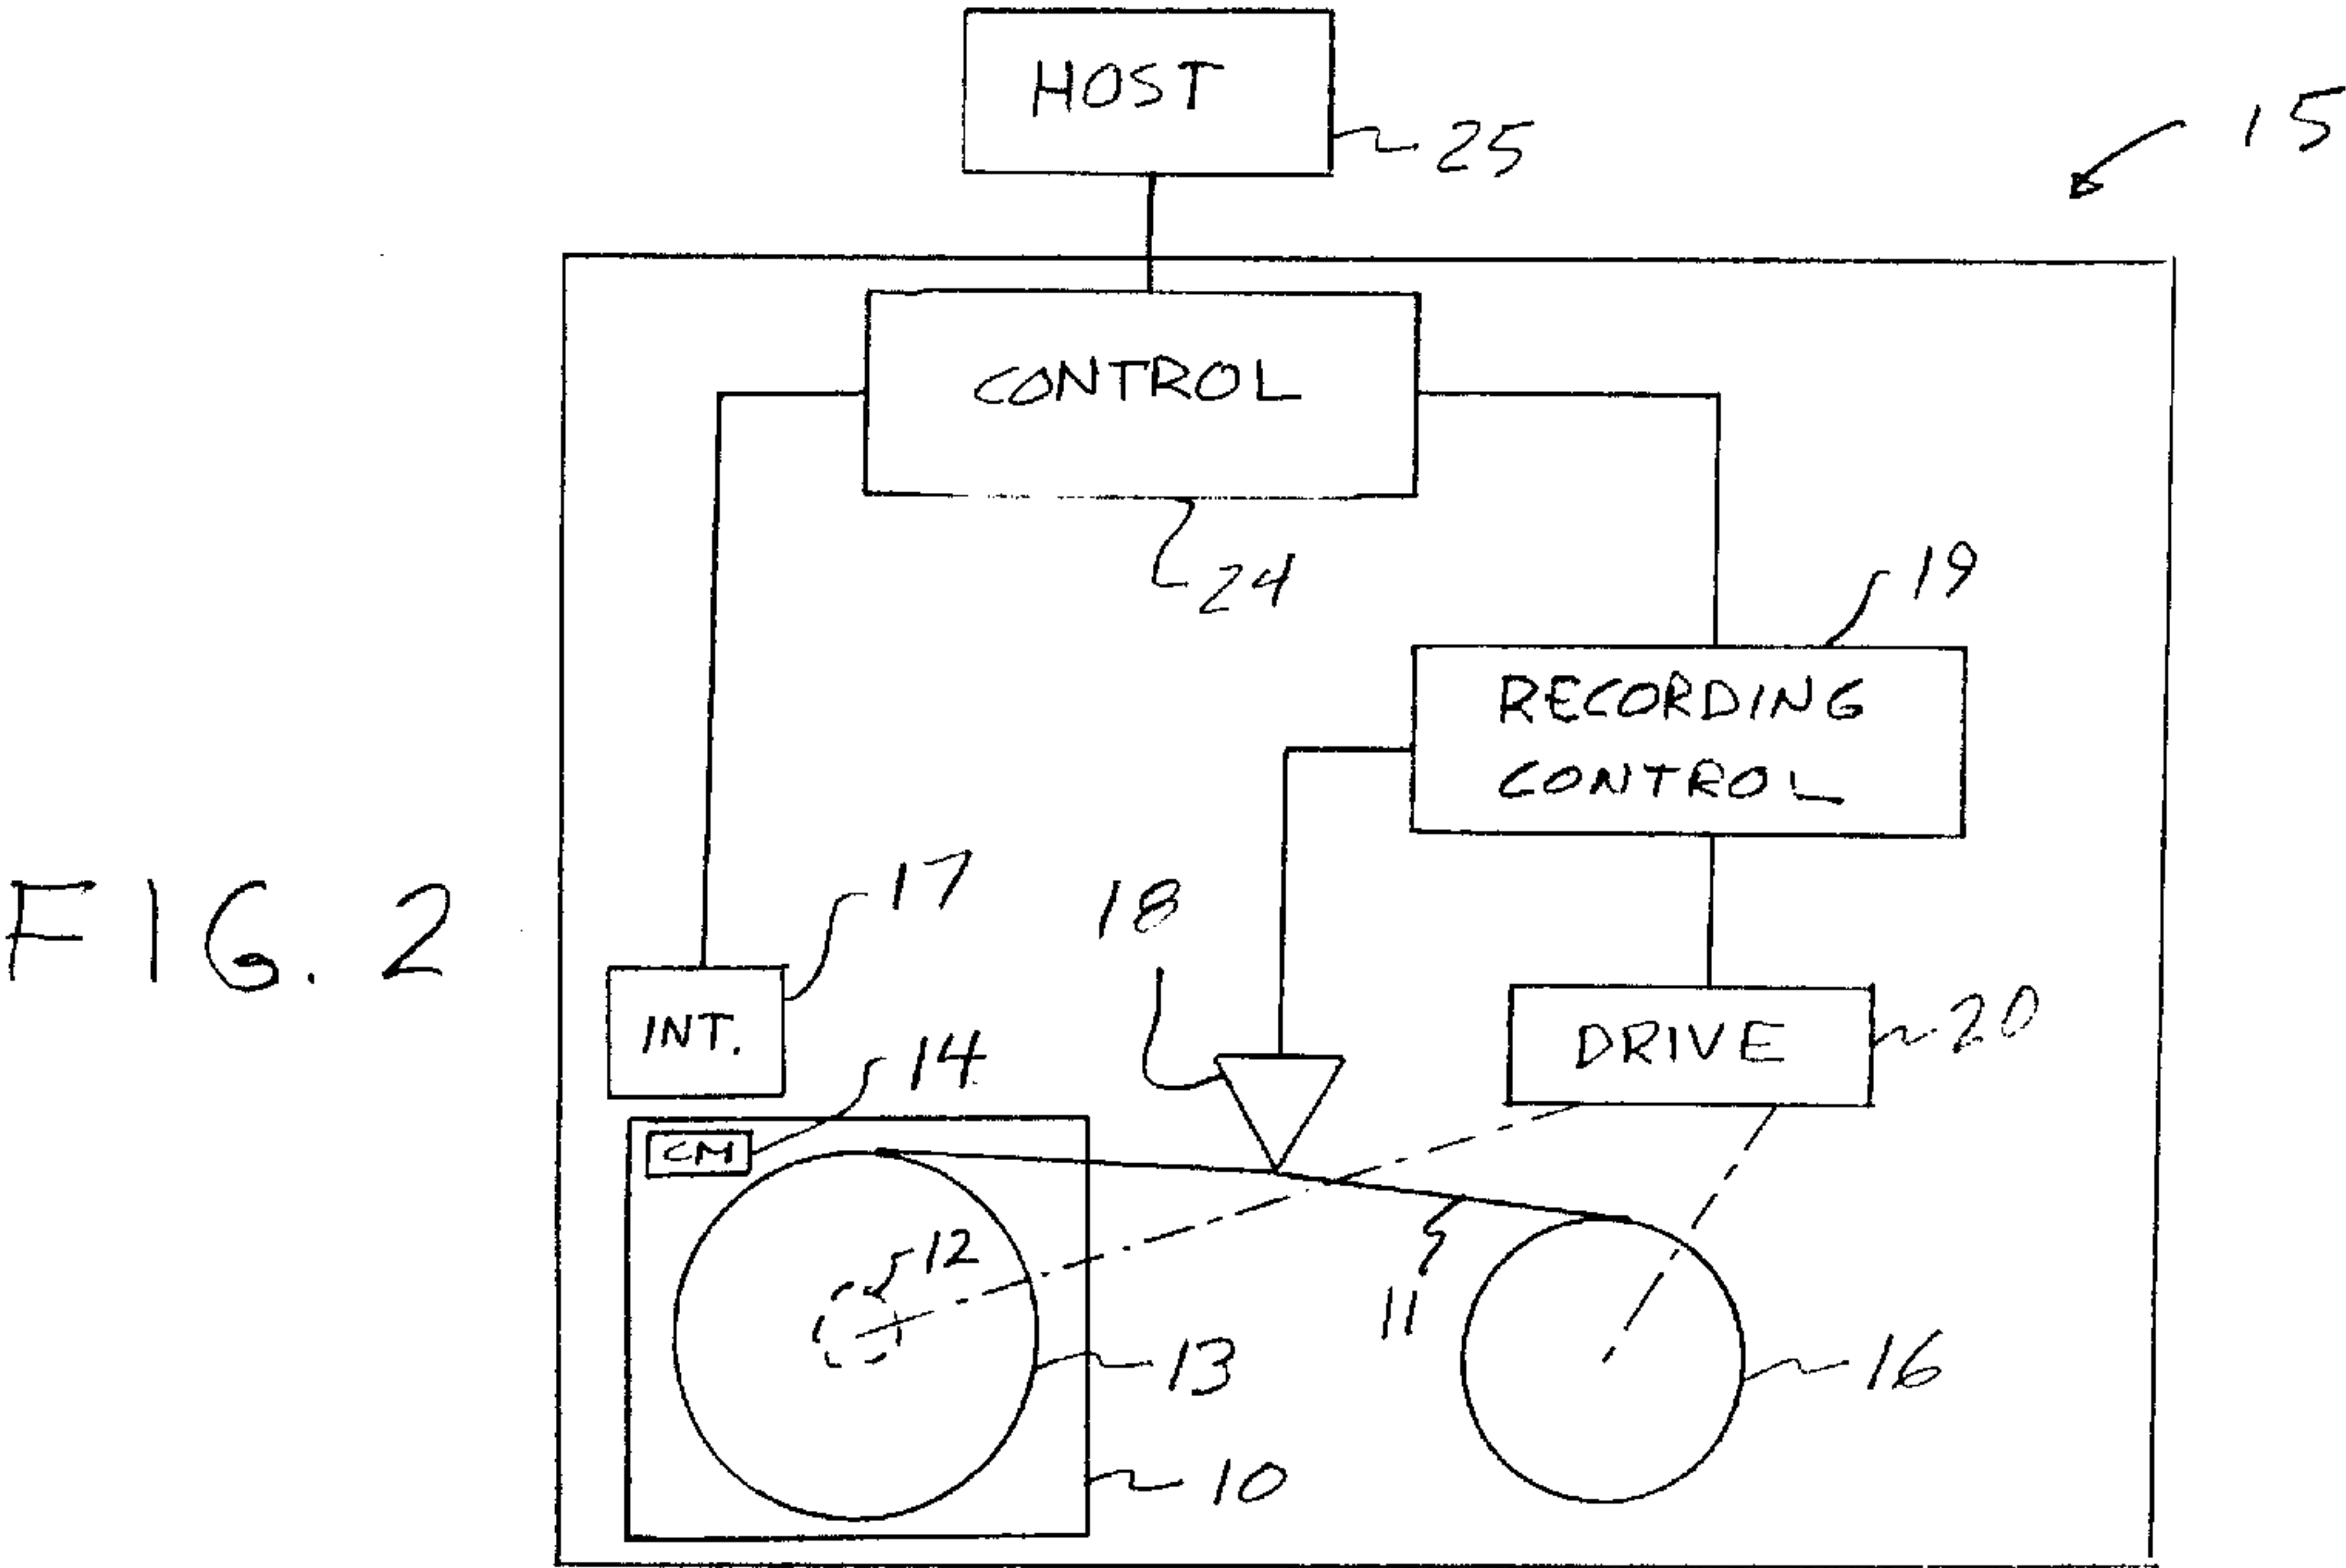 HOST
25
15
CONTROL
24
19
RECORDING
CONTROL
17
18
FIG. 2
INT.
14
DRIVE
20
CM
12
11
13
16
10